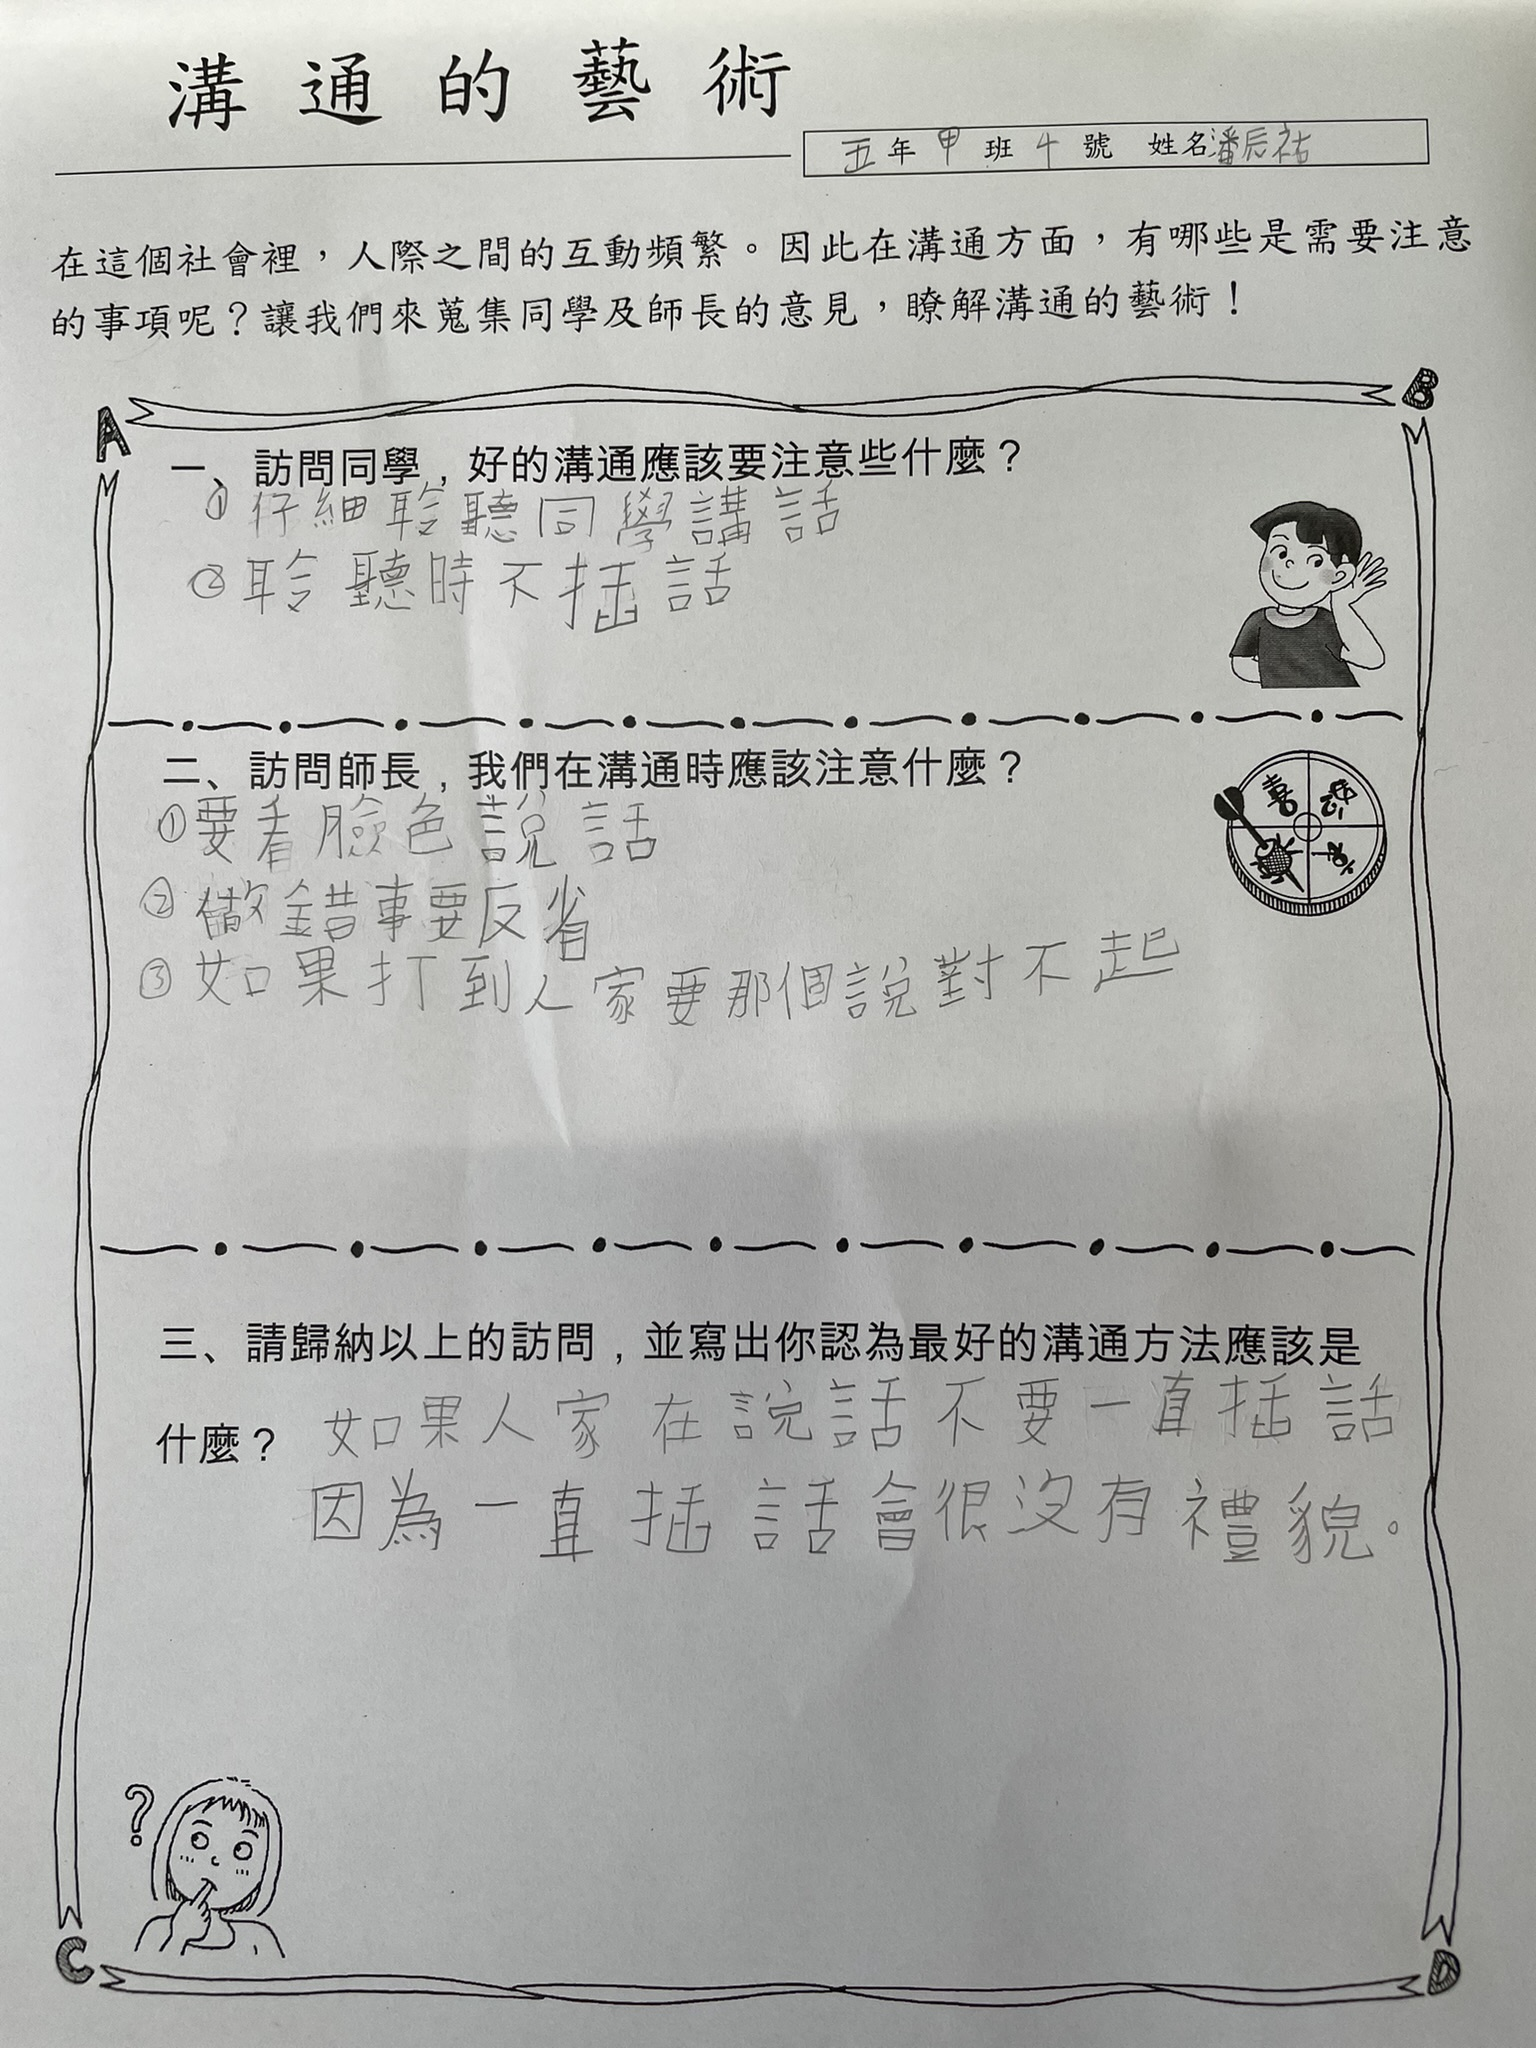 溝通的藝術
五年甲班4號 姓名潘辰祐
在這個社會裡,人際之間的互動頻繁。因此在溝通方面,有哪些是需要注意
的事項呢?讓我們來蒐集同學及師長的意見,瞭解溝通的藝術!
A
B
一、訪問同學,好的溝通應該要注意些什麼?
①仔細聆聽同學講話
②聆聽時不插話
二、訪問師長,我們在溝通時應該注意什麼?
喜怒
哀
①要看臉色說話
②做錯事要反省
③如果打到人家要那個說對不起
三、請歸納以上的訪問,並寫出你認為最好的溝通方法應該是
什麼?如果人家在說話不要一直插話
因為一直插話會很沒有禮貌。
?
C
D